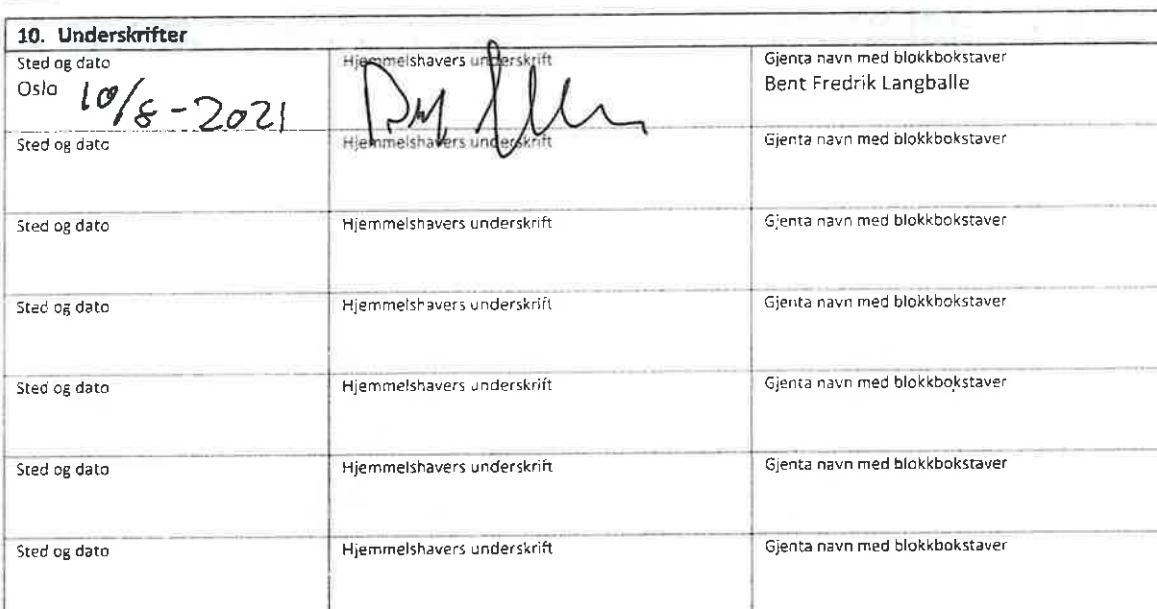 10. Underskrifter
Sted og dato Hjemmelshavers underskrift Gjenta navn med blokkbokstaver
Oslo 10/8-2021 Bent Fredrik Langballe
Sted og dato Hjemmelshavers underskrift Gjenta navn med blokkbokstaver
Sted og dato Hjemmelshavers underskrift Gjenta navn med blokkbokstaver
Sted og dato Hjemmelshavers underskrift Gjenta navn med blokkbokstaver
Sted og dato Hjemmelshavers underskrift Gjenta navn med blokkbokstaver
Sted og dato Hjemmelshavers underskrift Gjenta navn med blokkbokstaver
Sted og dato Hjemmelshavers underskrift Gjenta navn med blokkbokstaver